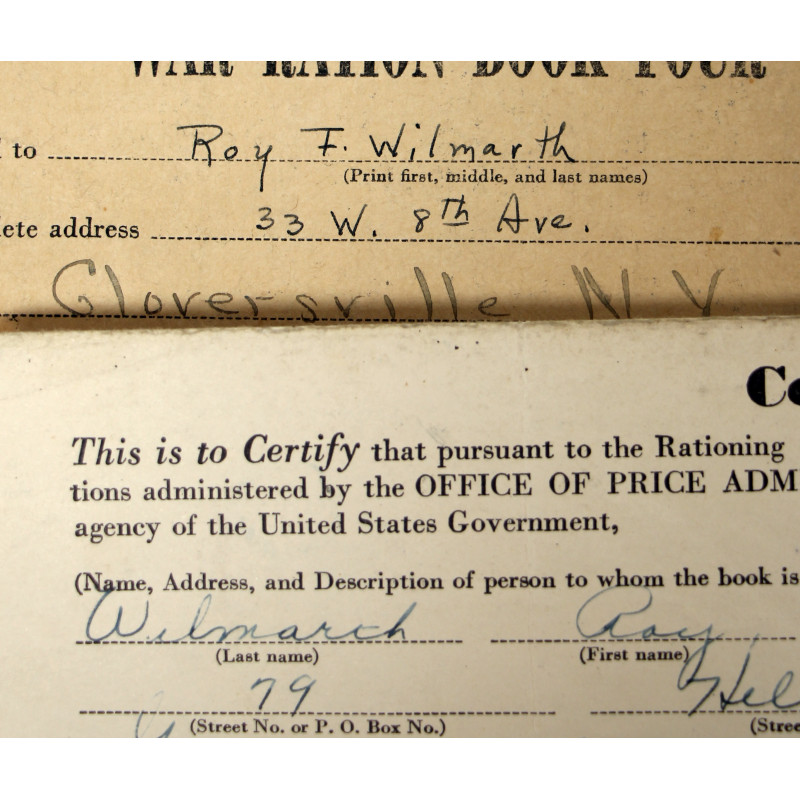 WAR RATION BOOK FOUR
d to Roy F. Wilmarth
(Print first, middle, and last names)
lete address 33 W. 8th Ave.
Gloversville N Y
Co
This is to Certify that pursuant to the Rationing
tions administered by the OFFICE OF PRICE ADM
agency of the United States Government,
(Name, Address, and Description of person to whom the book is
Wilmarth Roy
(Last name) (First name)
79 Hel
(Street No. or P. O. Box No.) (Stree